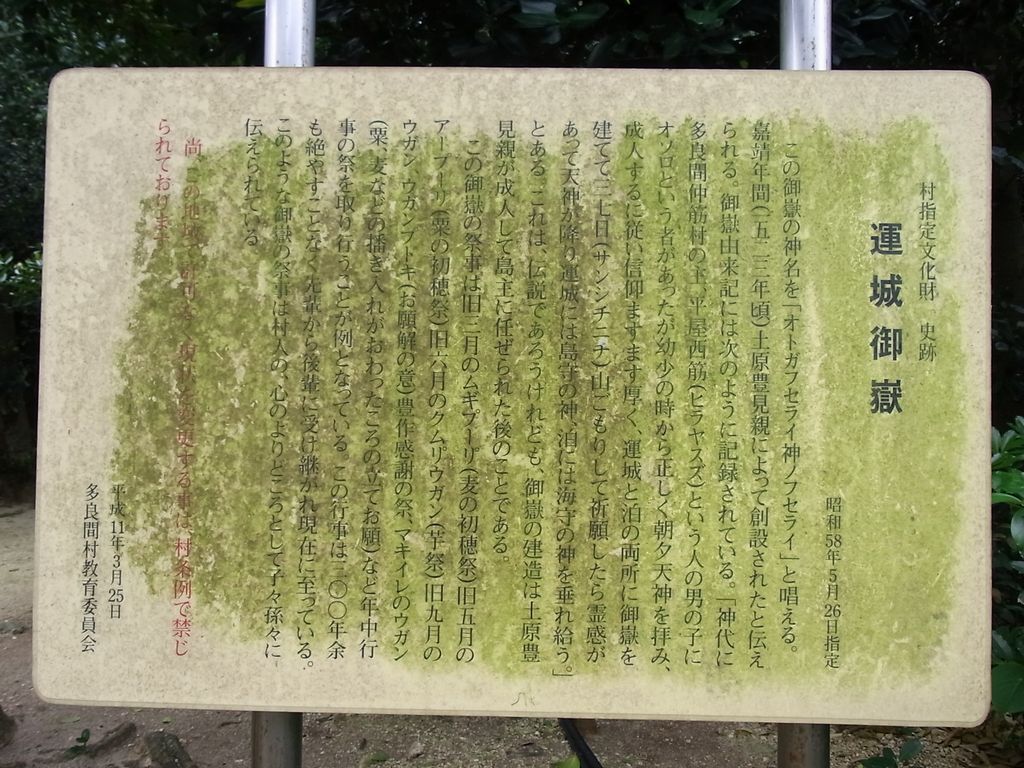 村指定文化財 史跡
運城御嶽
昭和58年5月26日指定
この御嶽の神名を「オトガフセライ神ノフセライ」と唱える。
嘉靖年間(一五二二年頃)土原豊見親によって創設されたと伝え
られる。御嶽由来記には次のように記録されている。「神代に
多良間仲筋村の主、平屋西筋(ヒラヤスズ)という人の男の子に
オソロという者があったが幼少の時から正しく朝夕天神を拝み、
成人するに従い信仰ますます厚く、運城と泊の両所に御嶽を
建てて三七日(サンシチニチ)山ごもりして祈願したら霊感が
あって天神が降り運城には島守の神、泊には海守の神を垂れ給う。」
とある。これは、伝説であろうけれども、御嶽の建造は土原豊
見親が成人して島主に任ぜられた後のことである。
この御嶽の祭事は旧三月のムギプーリ(麦の初穂祭)旧五月の
アープーリ(粟の初穂祭)旧六月のクムリウガン(芋祭)旧九月の
ウガン、ウガンプトキ(お願解の意)豊作感謝の祭、マキイレのウガン
(粟、麦などの播き入れがおわったころの立てお願)など年中行
事の祭を取り行うことが例となっている。この行事は二〇〇年余
も絶やすことなく先輩から後輩に受け継がれ現在に至っている。
このような御嶽の祭事は村人の、心のよりどころとして子々孫々に
伝えられている
尚、この地域で許可なく現状を変更する事は、村条例で禁じ
られております。
平成11年3月25日
多良間村教育委員会